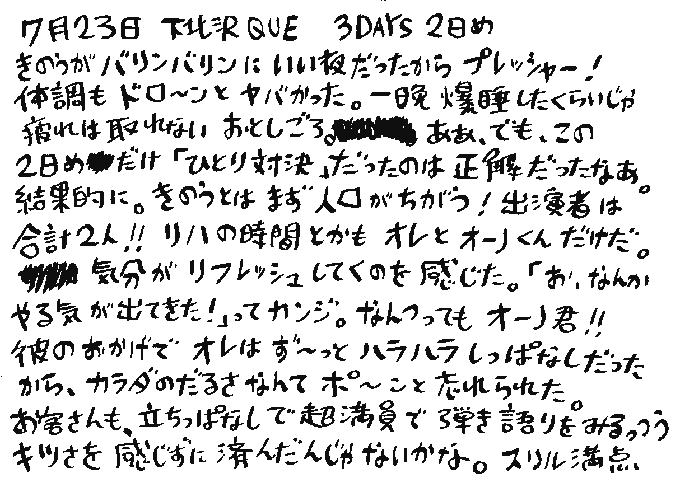 7月23日 下北沢QUE 3DAYS 2日め
きのうがバリンバリンにいい夜だったからプレッシャー!
体調もドロ〜ンとヤバかった。一晩爆睡したくらいじゃ
疲れは取れないおとしごろ。ああ、でも、この
2日めだけ「ひとり対決」だったのは正解だったなあ。
結果的に。きのうとはまず人口がちがう!出演者は
合計2人!!リハの時間とかもオレとオーノくんだけだ。
気分がリフレッシュしてくのを感じた。「お、なんか
やる気が出てきた!」ってカンジ。なんつってもオーノ君!!
彼のおかげでオレはず〜っとハラハラしっぱなしだった
から、カラダのだるさなんてポ〜ンと忘れられた。
お客さんも、立ちっぱなしで超満員で弾き語りをみるっつう
キツさを感じずに済んだんじゃないかな。スリル満点、